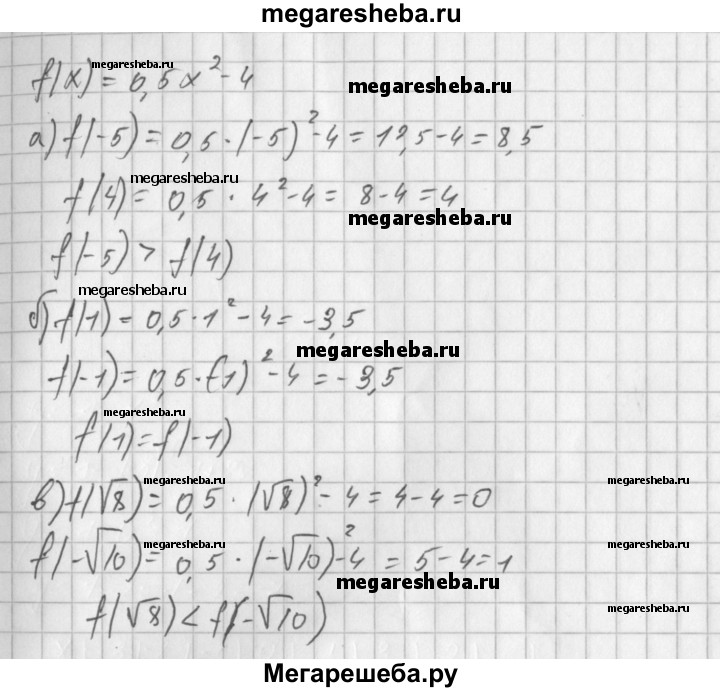 megaresheba.ru
megaresheba.ru
f(x) = 0,5x² - 4
megaresheba.ru
а) f(-5) = 0,5 · (-5)² - 4 = 12,5 - 4 = 8,5
megaresheba.ru
f(4) = 0,5 · 4² - 4 = 8 - 4 = 4
megaresheba.ru
f(-5) > f(4)
megaresheba.ru
б) f(1) = 0,5 · 1² - 4 = -3,5
megaresheba.ru
f(-1) = 0,5 · (-1)² - 4 = -3,5
megaresheba.ru
f(1) = f(-1)
megaresheba.ru
megaresheba.ru
megaresheba.ru
в) f(√8) = 0,5 · (√8)² - 4 = 4 - 4 = 0
megaresheba.ru
megaresheba.ru
megaresheba.ru
f(-√10) = 0,5 · (-√10)² - 4 = 5 - 4 = 1
megaresheba.ru
f(√8) < f(-√10)
megaresheba.ru
megaresheba.ru
Мегарешеба.ру